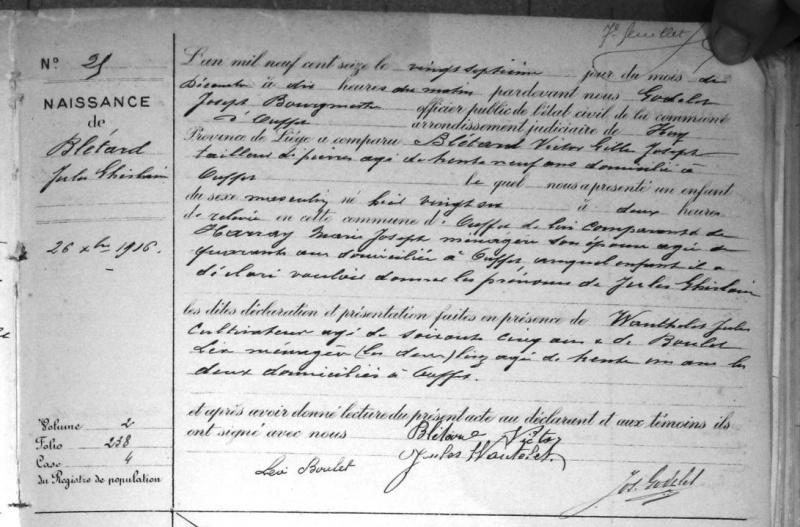 7e feuillet
N° 25
NAISSANCE
de
Blétard
Jules Ghislain
26 xbre 1916.
L'an mil neuf cent seize le vingt septième jour du mois de
Décembre à dix heures du matin pardevant nous Godelet
Joseph Bourgmestre officier public de l'état civil de la commune
d'Ouffet arrondissement judiciaire de Huy
Province de Liége a comparu Blétard Victor Joseph
tailleur de pierres agé de trente neuf ans domicilié à
Ouffet lequel nous a présenté un enfant
du sexe masculin né hier vingt six à deux heures
de relevée en cette commune d'Ouffet de lui comparant et de
Harray Marie Joseph ménagère son épouse agée de
quarante ans domiciliée à Ouffet auquel enfant il a
déclaré vouloir donner les prénoms de Jules Ghislain
les dites déclaration et présentation faites en présence de Wauthelet Jules
cultivateur agé de soixante cinq ans & de Boulet
Léa ménagère agée de trente un ans les
deux domiciliés à Ouffet.
et après avoir donné lecture du présent acte au déclarant et aux témoins ils
ont signé avec nous Blétard Victor
Jules Wautelet.
Léa Boulet
Jos. Godelet
Volume 2
Folio 238
Case 4
du Registre de population